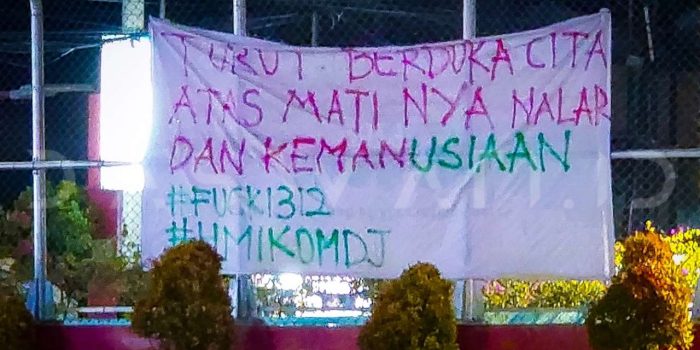 TURUT BERDUKA CITA
ATAS MATI NYA NALAR
DAN KEMANUSIAAN
#FUCK1312
#HMIKOMDJ